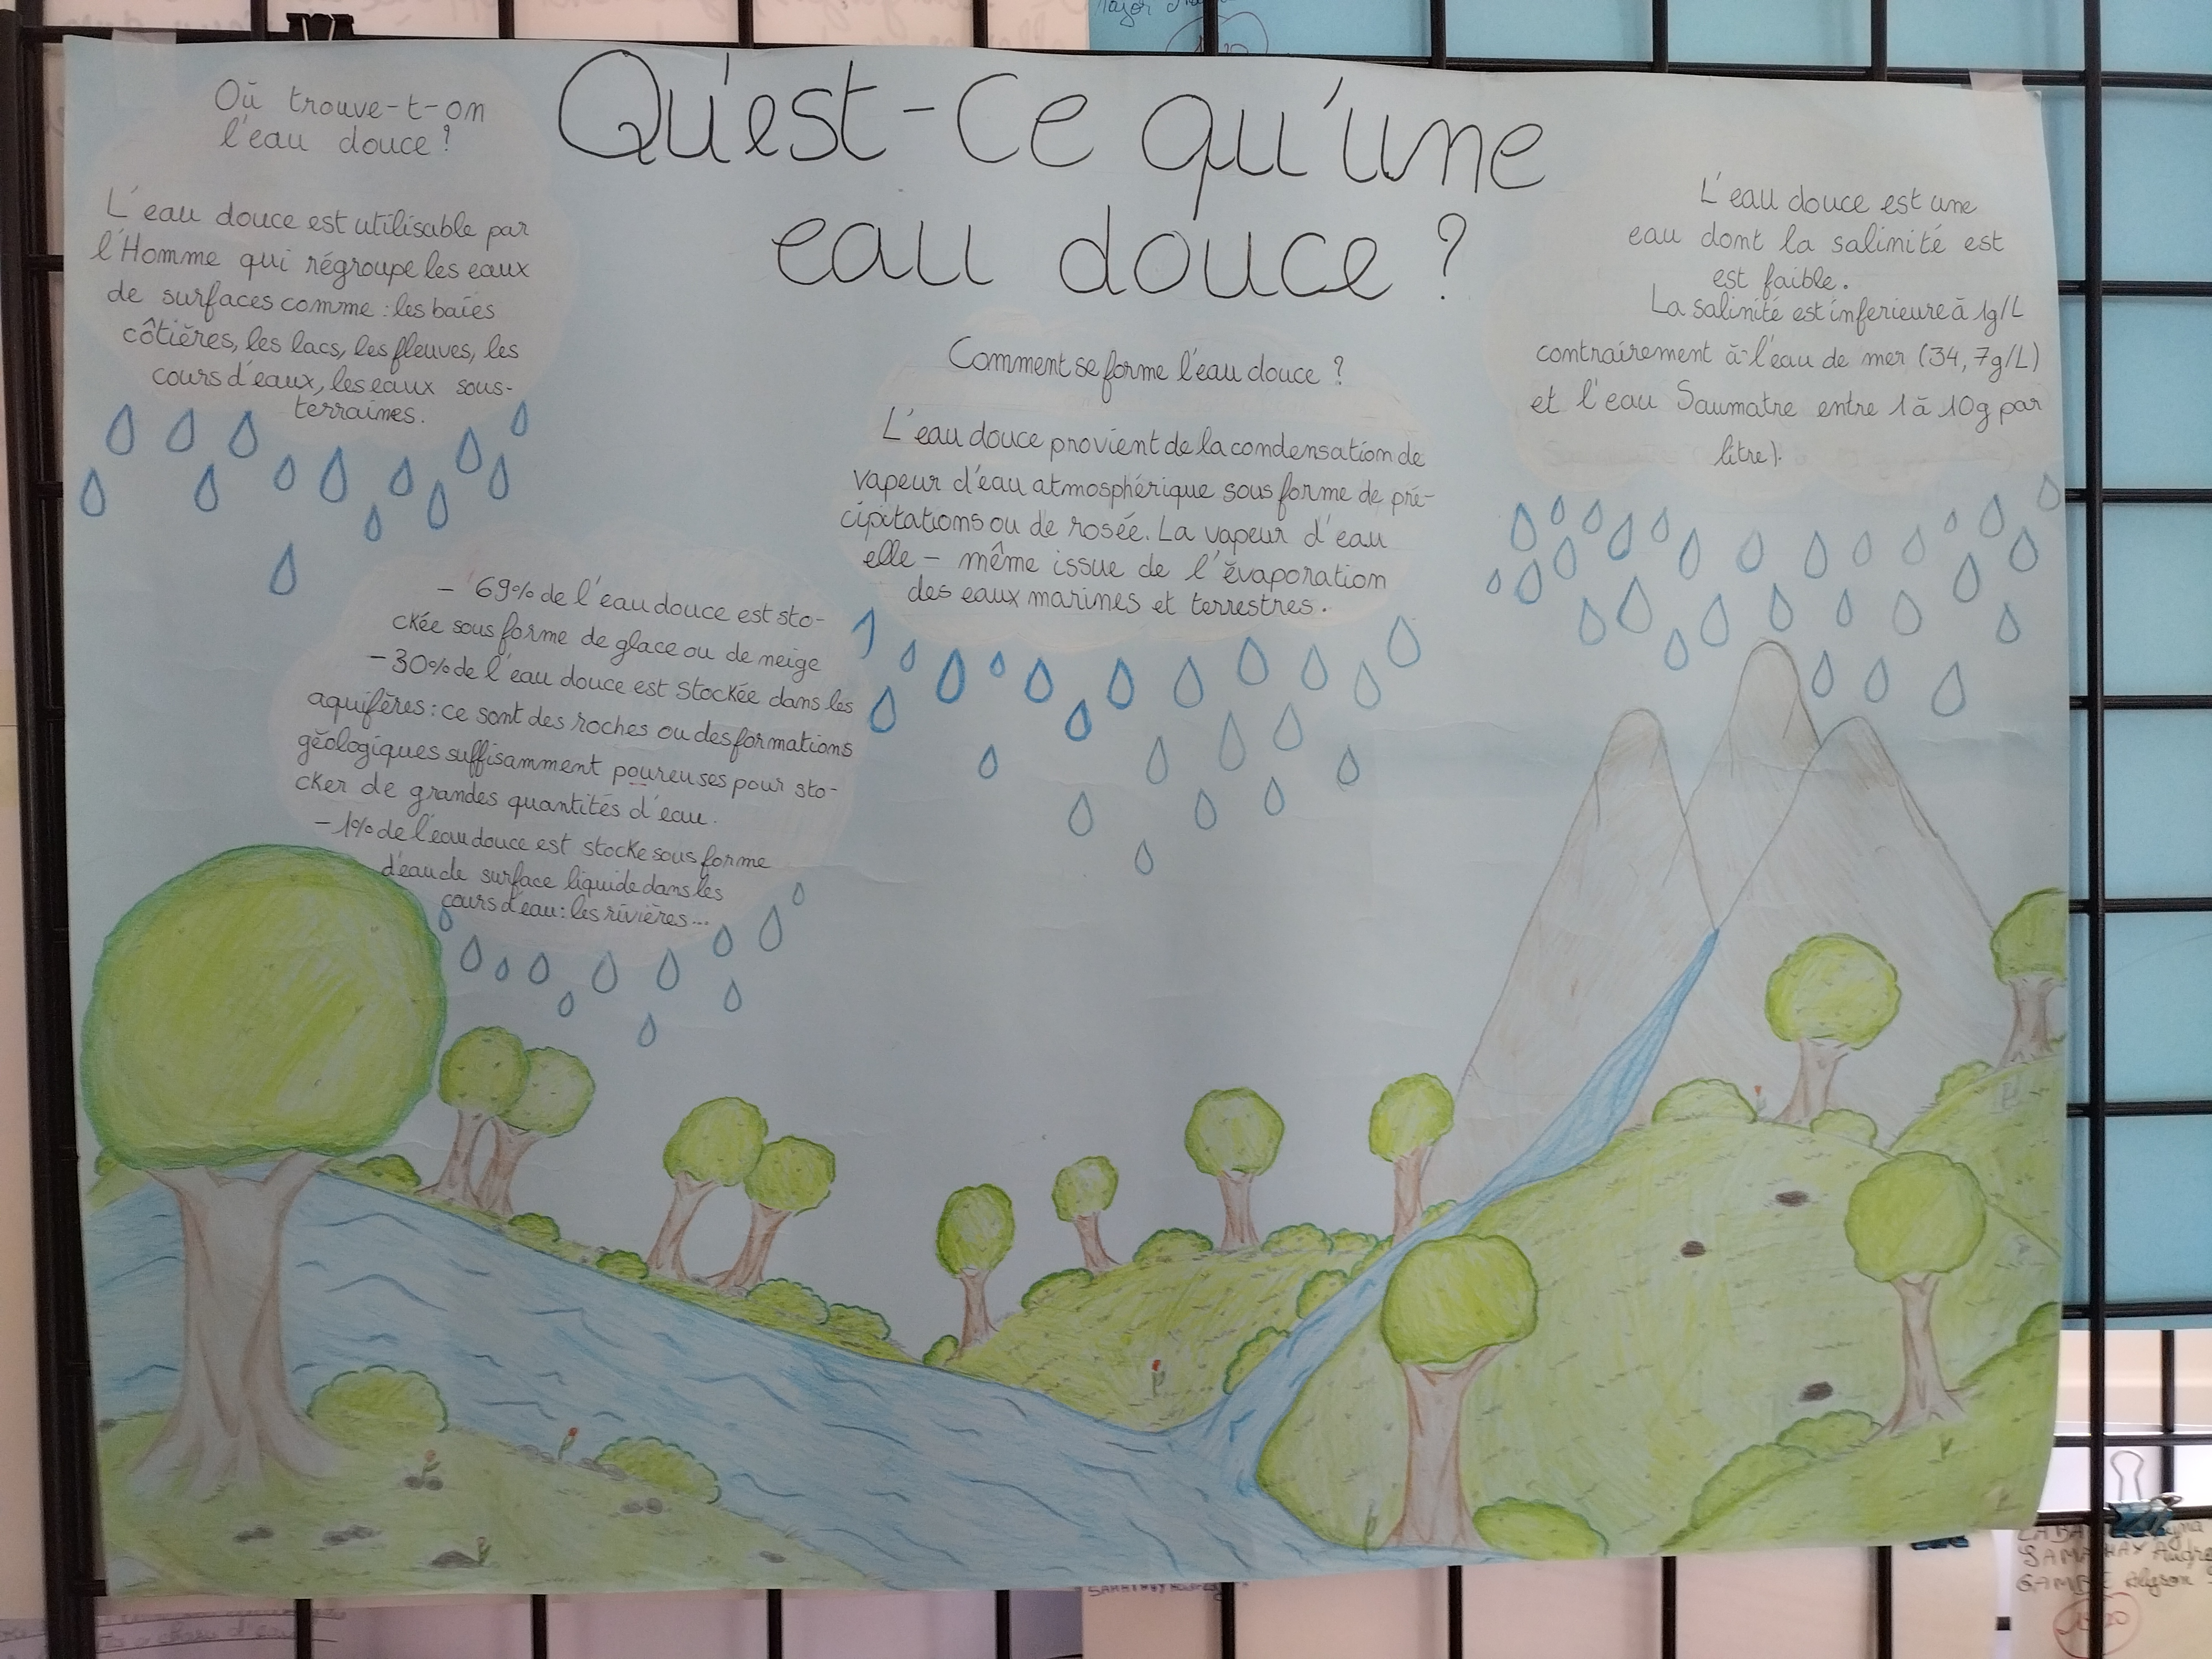 Où trouve-t-on
l'eau douce ?
L'eau douce est utilisable par
l'Homme qui régroupe les eaux
de surfaces comme : les baies
côtières, les lacs, les fleuves, les
cours d'eaux, les eaux sous-
terraines.
Qu'est-Ce qu'une
eau douce ?
L'eau douce est une
eau dont la salinité est
est faible.
La salinité est inferieure à 1g/L
contrairement à l'eau de mer (34,7g/L)
et l'eau Saumatre entre 1 à 10g par
litre).
Comment se forme l'eau douce ?
L'eau douce provient de la condensation de
vapeur d'eau atmosphérique sous forme de pré-
cipitations ou de rosée. La vapeur d'eau
elle - même issue de l'évaporation
des eaux marines et terrestres.
- 69% de l'eau douce est sto-
ckée sous forme de glace ou de neige
- 30% de l'eau douce est stockée dans les
aquifères : ce sont des roches ou des formations
géologiques suffisamment poureuses pour sto-
cker de grandes quantités d'eau.
- 1% de l'eau douce est stocke sous forme
d'eau de surface liquide dans les
cours d'eau : les rivières...
SAMATHAY
GAMBIE Alyson